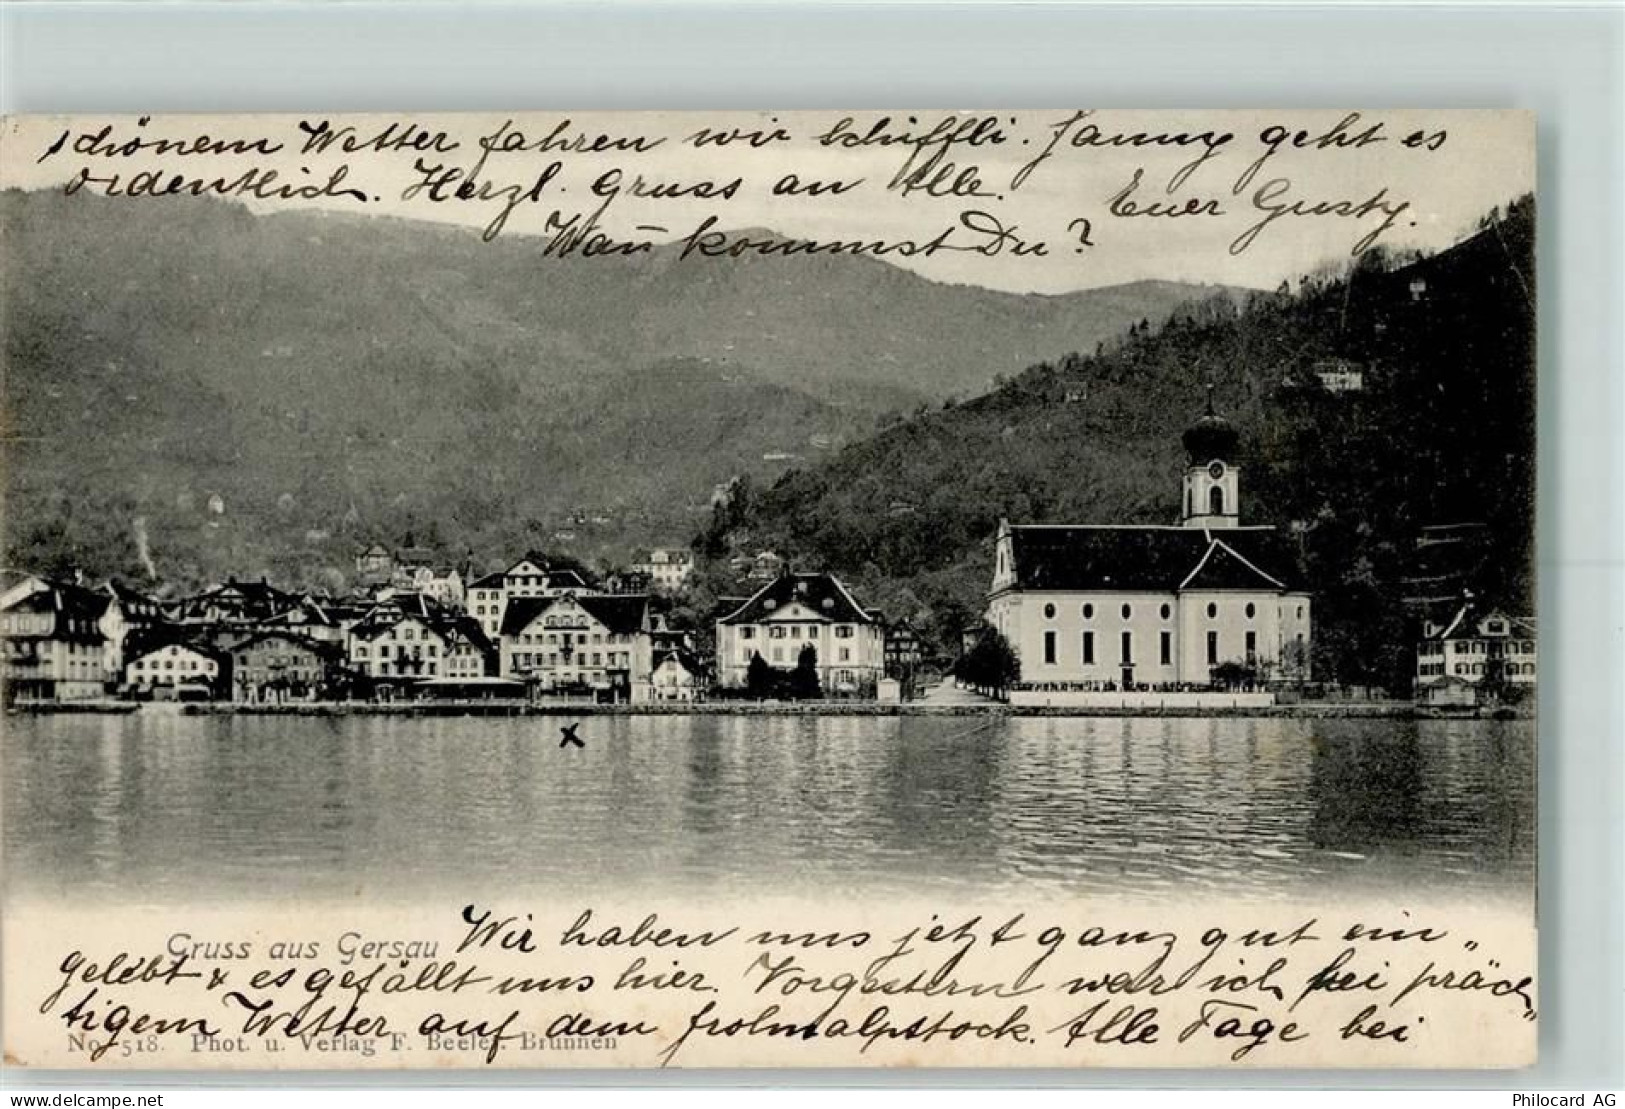 schönem Wetter fahren wir Schiffli. Fanny geht es
ordentlich. Herzl. Gruss an Alle. Euer Gusty.
Wañ kommst Du?
x
Gruss aus Gersau
Wir haben uns jetzt ganz gut ein„
gelebt & es gefällt uns hier. Vorgestern war ich bei präch„
tigem Wetter auf dem Frohnalpstock. Alle Tage bei
No. 518. Phot. u. Verlag F. Beeler. Brunnen
delcampe.net
Philocard AG